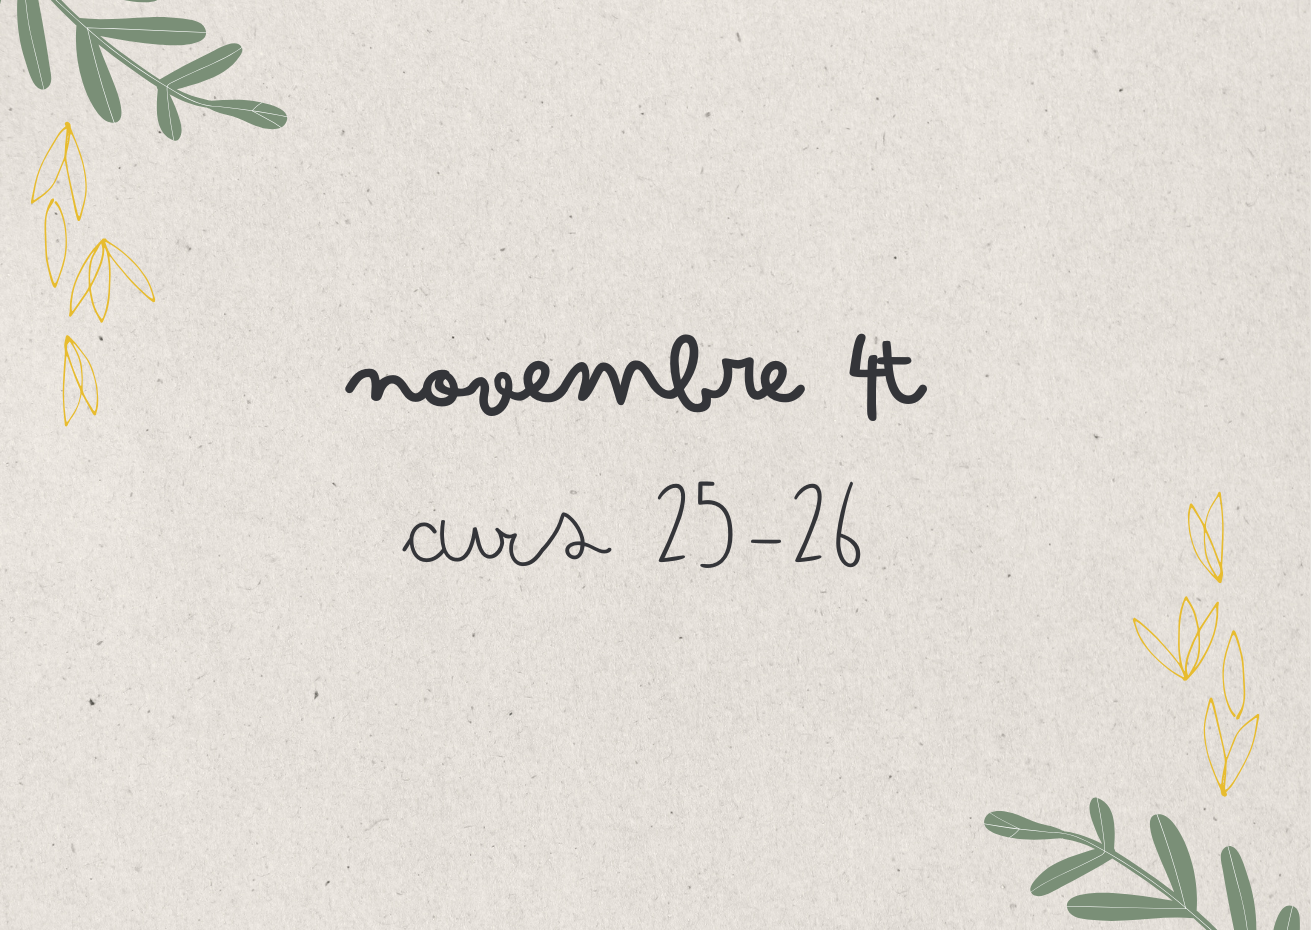 novembre 4t
curs 25-26